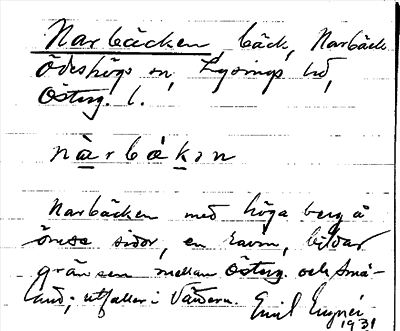 Narbäcken, bäck, Narbäck
Ödeshögs sn, Lysings hd,
Österg. l.
nàrbákən
Narbäcken med höga berg å
ömse sidor, en ravin, bildar
gränsen mellan Österg. och Små-
land; utfaller i Vättern. Emil
1931